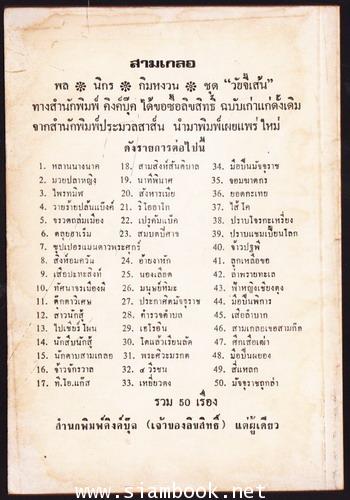 สามเกลอ
พล ❊ นิกร ❊ กิมหงวน ❊ ชุด “วัยจี้เส้น”
ทางสำนักพิมพ์ คิงค์บุ๊ค ได้ขอซื้อลิขสิทธิ์ ฉบับเก่าแก่ดั้งเดิม
จากสำนักพิมพ์ประมวลสาส์น นำมาพิมพ์เผยแพร่ ใหม่
ดังรายการต่อไปนี้
1. หลานนางนาค
2. มวยปล้ำหญิง
3. ไพรทมิฬ
4. วายร้ายปล้นแบ๊งค์
5. จรวดถล่มเมือง
6. ตลุยฮาเร็ม
7. ซุปเปอร์แมนดาวพระศุกร์
8. สิงห์อมควัน
9. เสือปะทะสิงห์
10. ทัศนาจรเมืองผี
11. ตึกดาวเศษ
12. สาวนักสู้
13. ไปเชียร์โขน
14. นักสืบนักสู้
15. นักดาบสามเกลอ
16. จ้าวจักรวาล
17. ที.ไอ.แก๊ส
18. สามสิงห์สันติบาล
19. นาทีพิฆาต
20. สังหารเมีย
21. ริโอฮาโก
22. เปรูคัมแบ็ค
23. สมบัติปีศาจ
24. อ้ายงาหัก
25. นองเลือด
26. มนุษย์หิมะ
27. ประกาศิตมัจจุราช
28. ตำรวจตำบล
29. เฮโรอิน
30. ไตแล้วเรียนลัด
31. พระศิวะมรกต
32. ๔ วีรชน
33. เหยี่ยวดง
34. มือปืนมัจจุราช
35. จอมฆาตกร
36. ยอดกะเทย
37. ไอ้โต
38. ปราบโจรกะเหรี่ยง
39. ปราบแชมเปี้ยนโลก
40. จ้าวปฐพี
41. ลูกเหลือขอ
42. ล่าพรายทะเล
43. ฟ้าหญิงเชียงตุง
44. มือปืนพิการ
45. เสือลำบาก
46. สามเกลอเจอสามกิ๊ก
47. ศึกเสือเฒ่า
48. มือปืนผยอง
49. สี่แหลก
50. มัจจุราชถูกล่า
รวม 50 เรื่อง
สำนักพิมพ์คิงค์บุ๊ค (เจ้าของลิขสิทธิ์) แต่ผู้เดียว
www.siambook.net